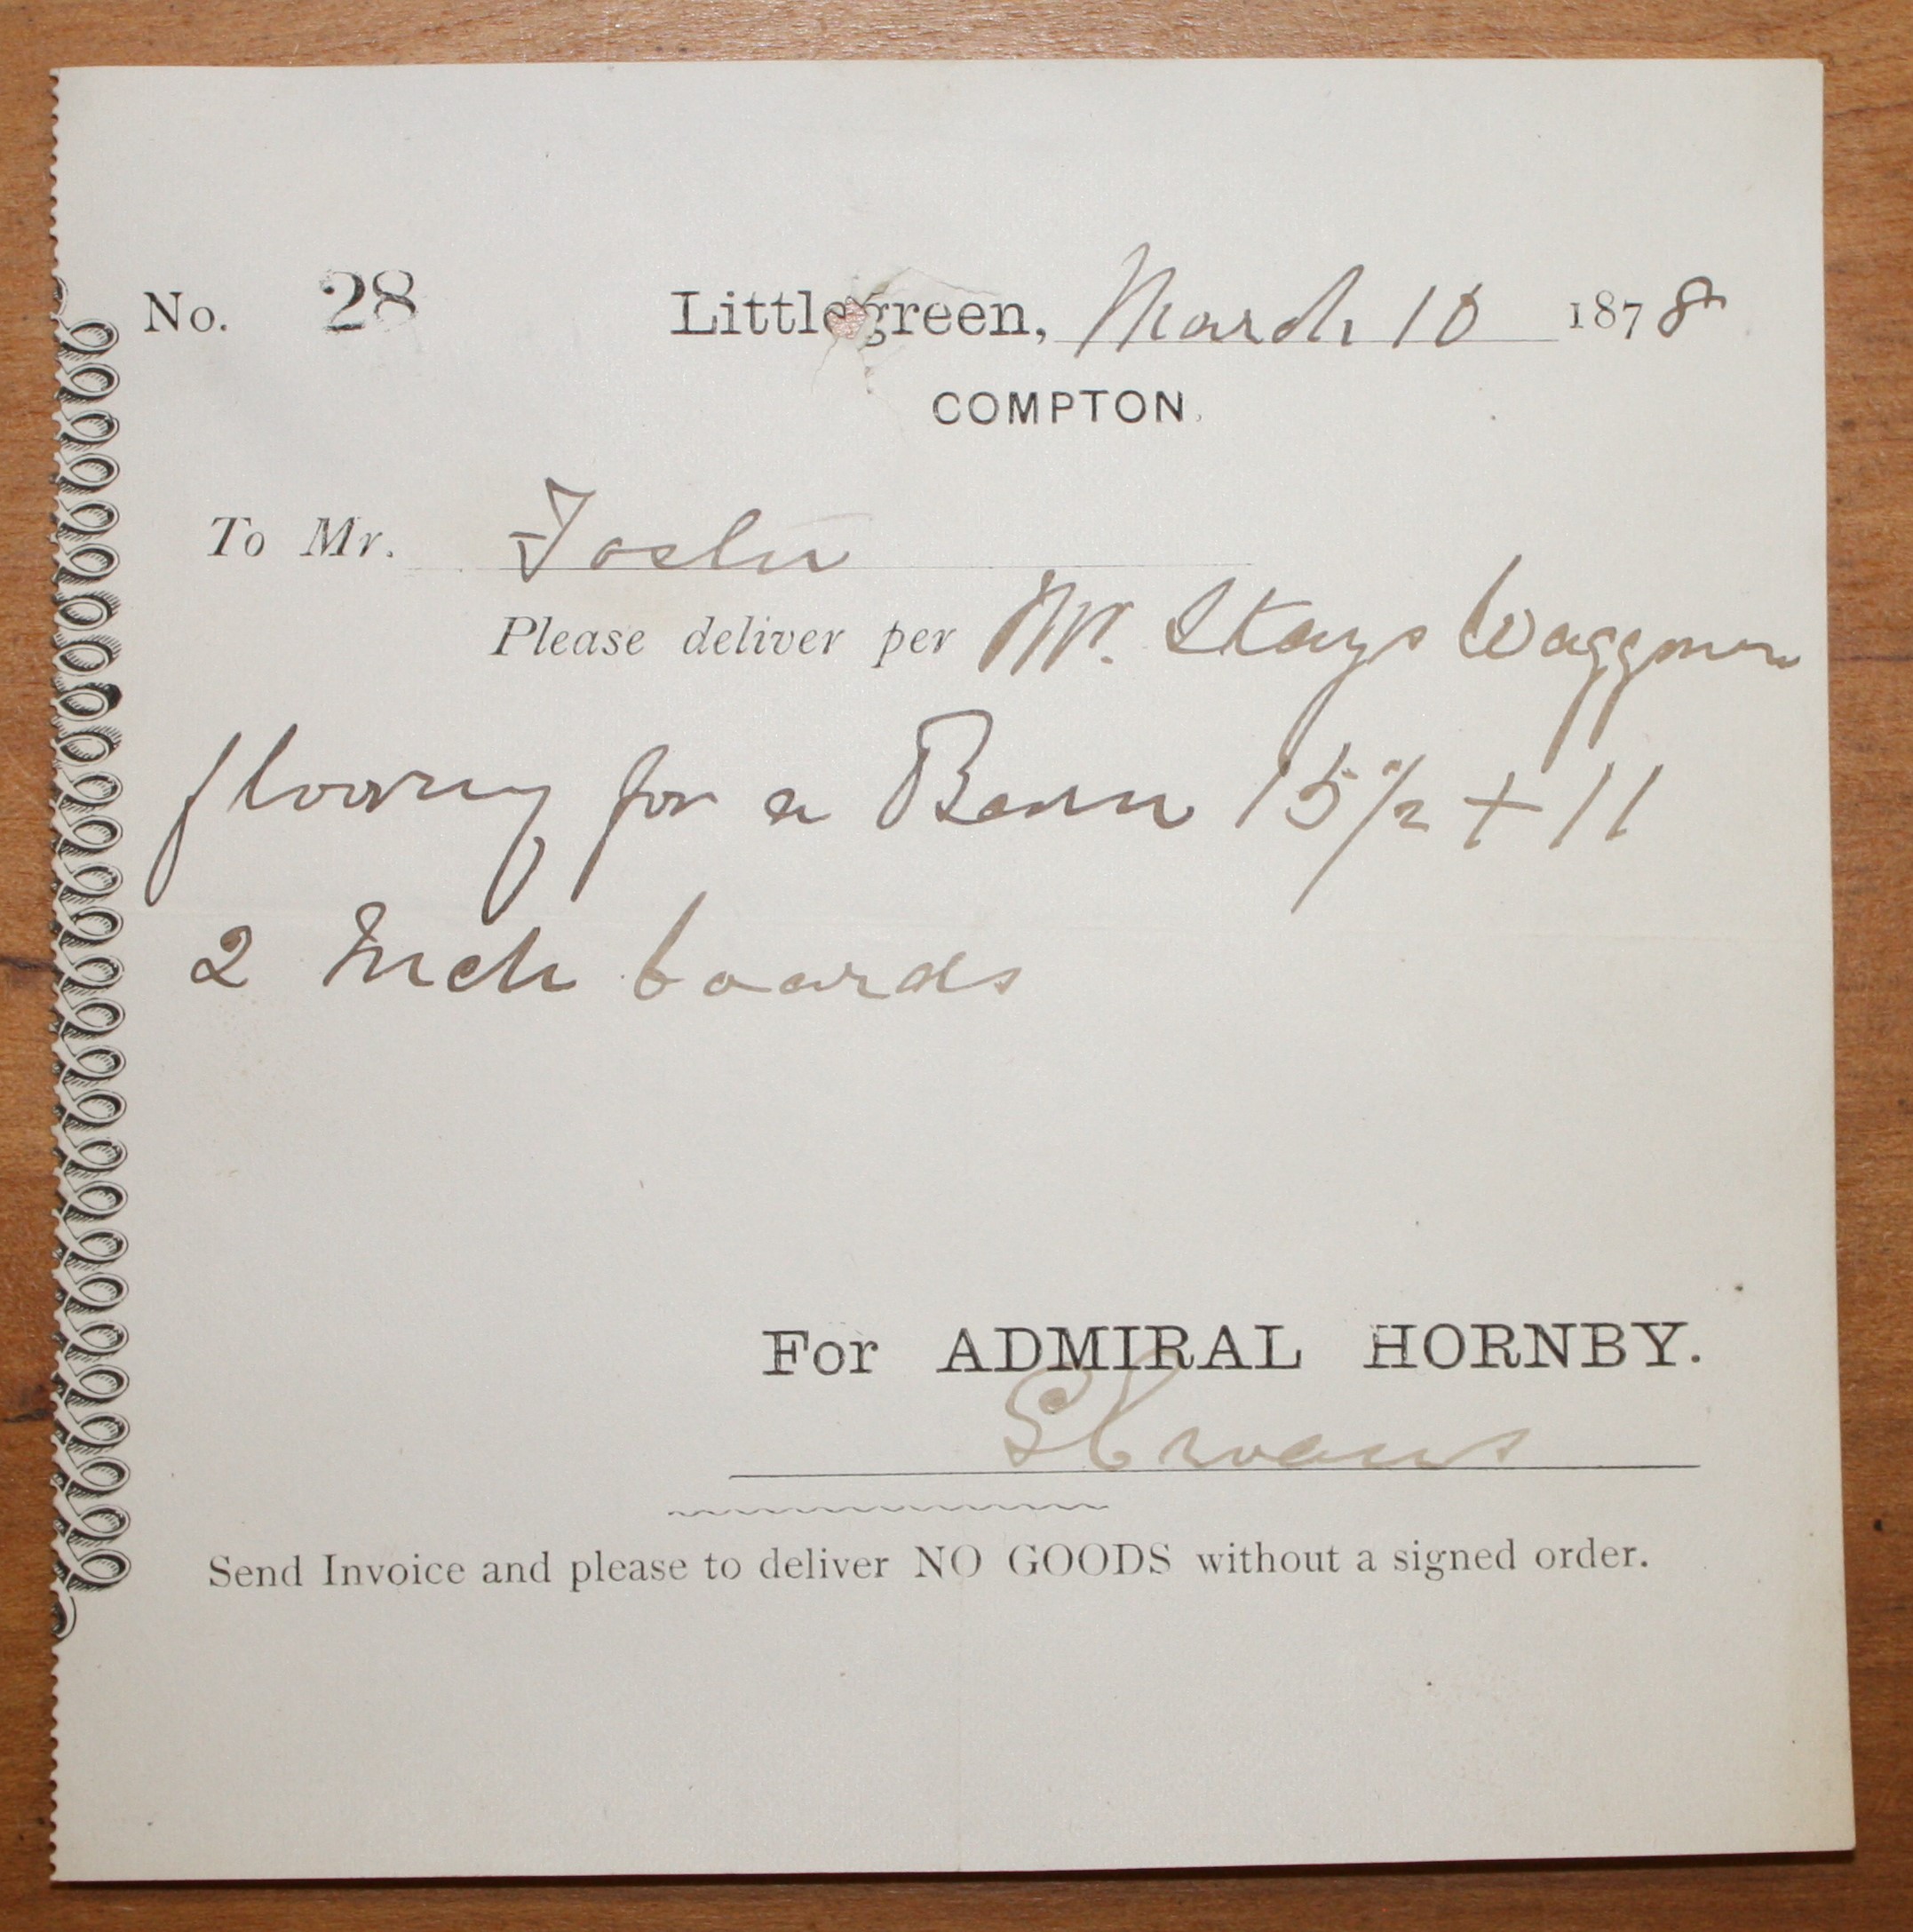 No. 28 Littlegreen, March 10 1878
COMPTON.
To Mr. Foster
Please deliver per Mr. Stays Waggoner
flooring for a Barn 15/2 + 11
2 Inch boards
For ADMIRAL HORNBY.
Send Invoice and please to deliver NO GOODS without a signed order.